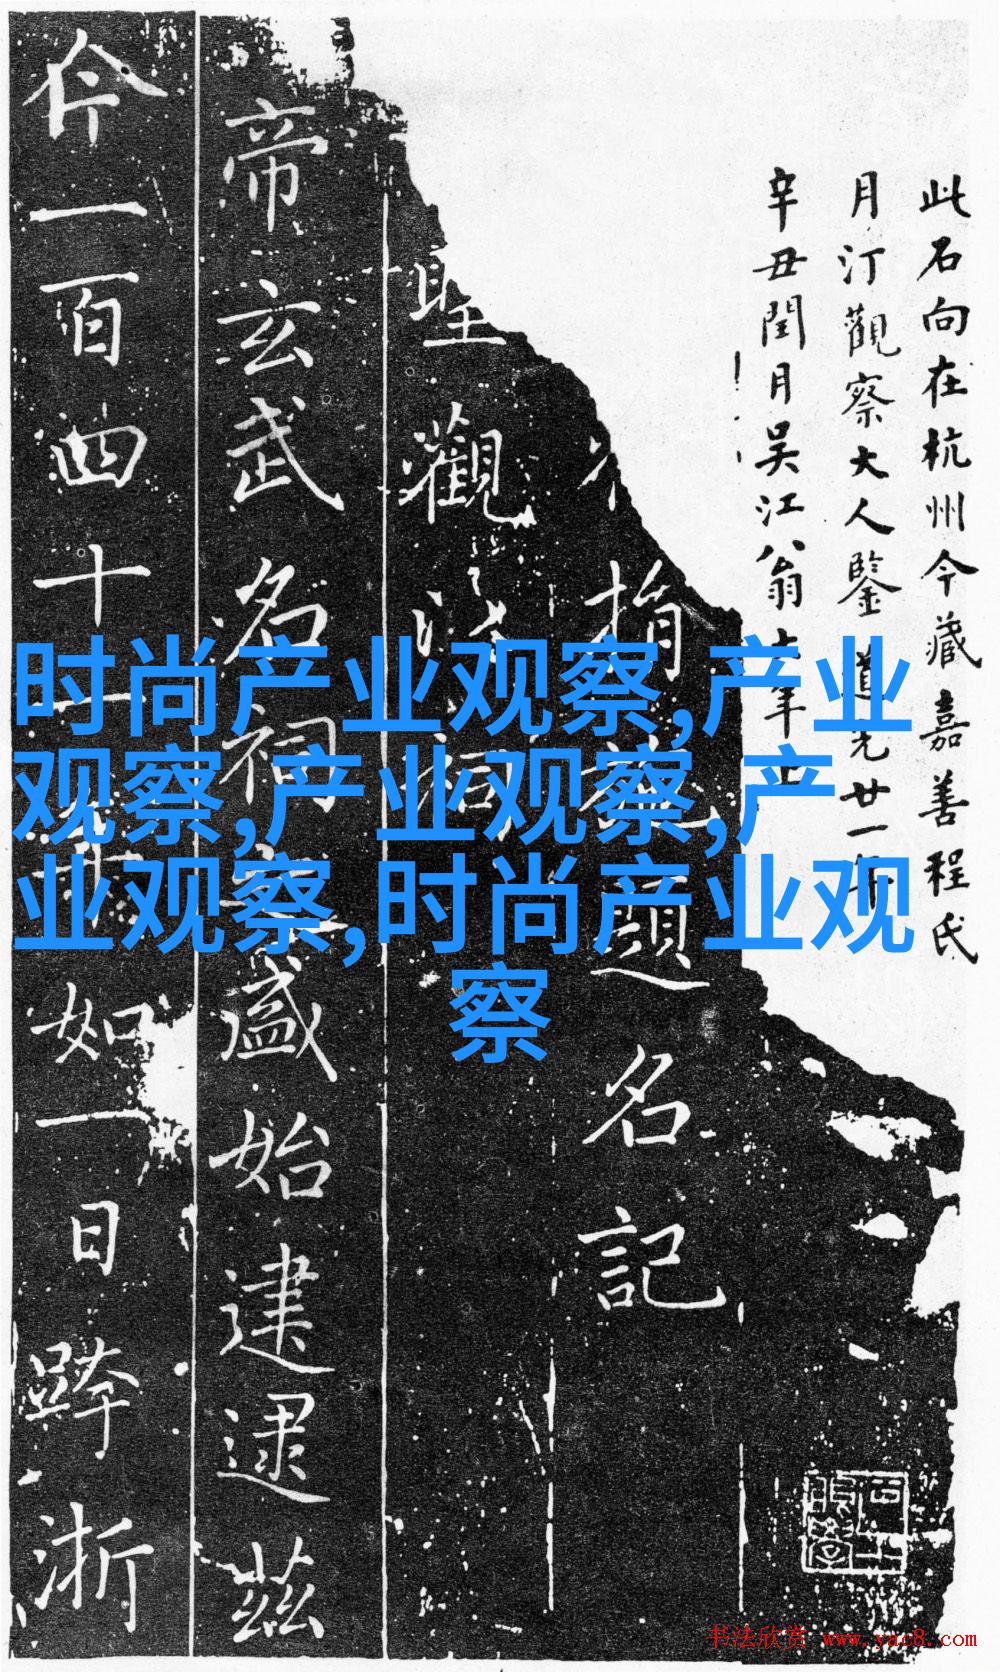 此石向在杭州今藏嘉善程氏
月汀觀察大人鑒 道光廿一年
辛丑閏月吳江翁大年
指 題名記
聖觀 祠
帝玄武名祠 盛始建逮茲
今一百四十一年如一日跨浙
时尚产业观察,产业
观察,产业观察,产
业观察,时尚产业观
察
书法欣赏 www.yac8.com